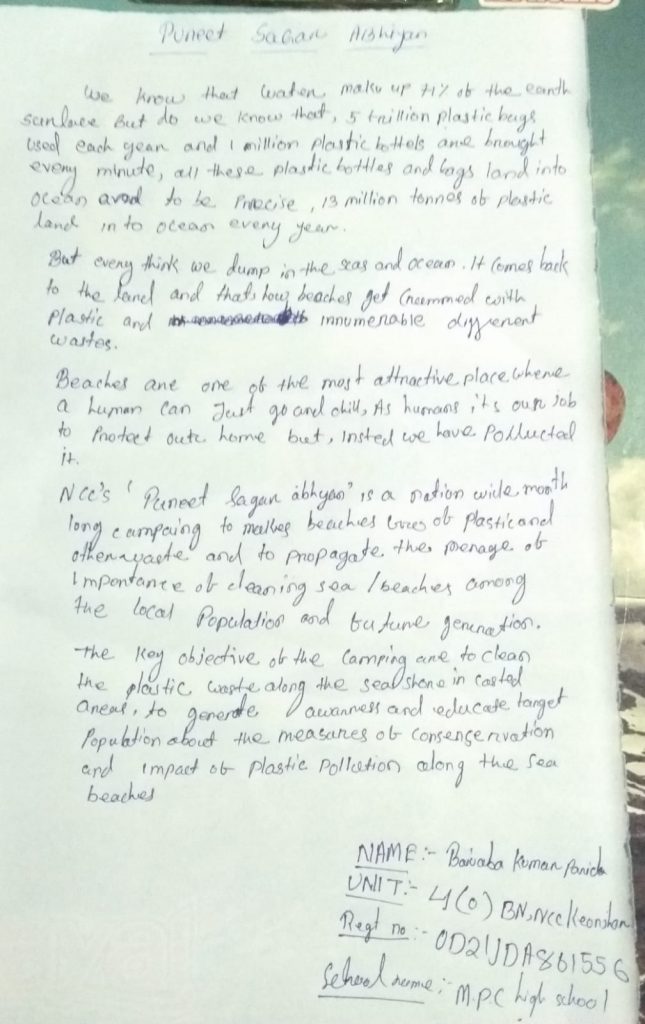 Puneet Sagar Abhiyan
We know that water make up 71% of the earth
surface But do we know that, 5 trillion plastic bags
used each year and 1 million plastic bottels are brought
every minute, all these plastic bottles and bags land into
ocean and to be Precise, 13 million tonnes of plastic
land in to ocean every year.
But every think we dump in the seas and ocean. It Comes back
to the land and thats how beaches get Crammed with
Plastic and innumerable diffenent
wastes.
Beaches are one of the most attractive place where
a human can Just go and chill, As humans it's our job
to Protect our home but, insted we have Polluted
it.
NCC's "Puneet Sagar abhyan" is a nation wide month
long campaing to makes beaches free of Plastic and
other waste and to propagate the message of
Importance of cleaning sea / beaches among
the local Population and future generation.
The Key objective of the Camping are to clean
the plastic waste along the sea shore in
areas, to generate awarness and educate target
Population about the measures of
and impact of Plastic Pollution along the Sea
beaches
NAME:- Kumar Parida
UNIT:- 4(O) BN, NCC Keonjhar
Regt no:- OD21JDA861556
School name:- M.P.C high school